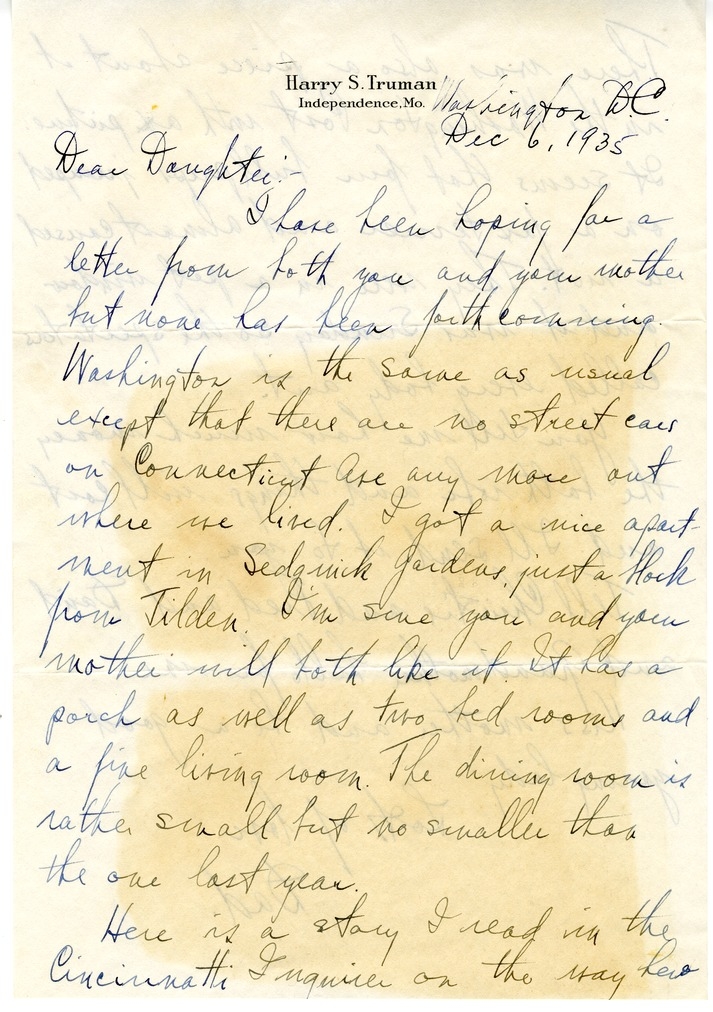 Harry S. Truman
Independence, Mo.
Washington D.C.
Dec 6, 1935
Dear Daughter:-
I have been hoping for a
letter from both you and your mother
but none has been forthcomming.
Washington is the same as usual
except that there are no street cars
on Connecticut Ave any more out
where we lived. I got a nice apart-
ment in Sedgwick Gardens, just a block
from Tilden. I'm sure you and your
mother will both like it. It has a
porch as well as two bed rooms and
a fine living room. The dining room is
rather small but no smaller than
the one last year.
Here is a story I read in the
Cincinnatti Inquirer on the way here